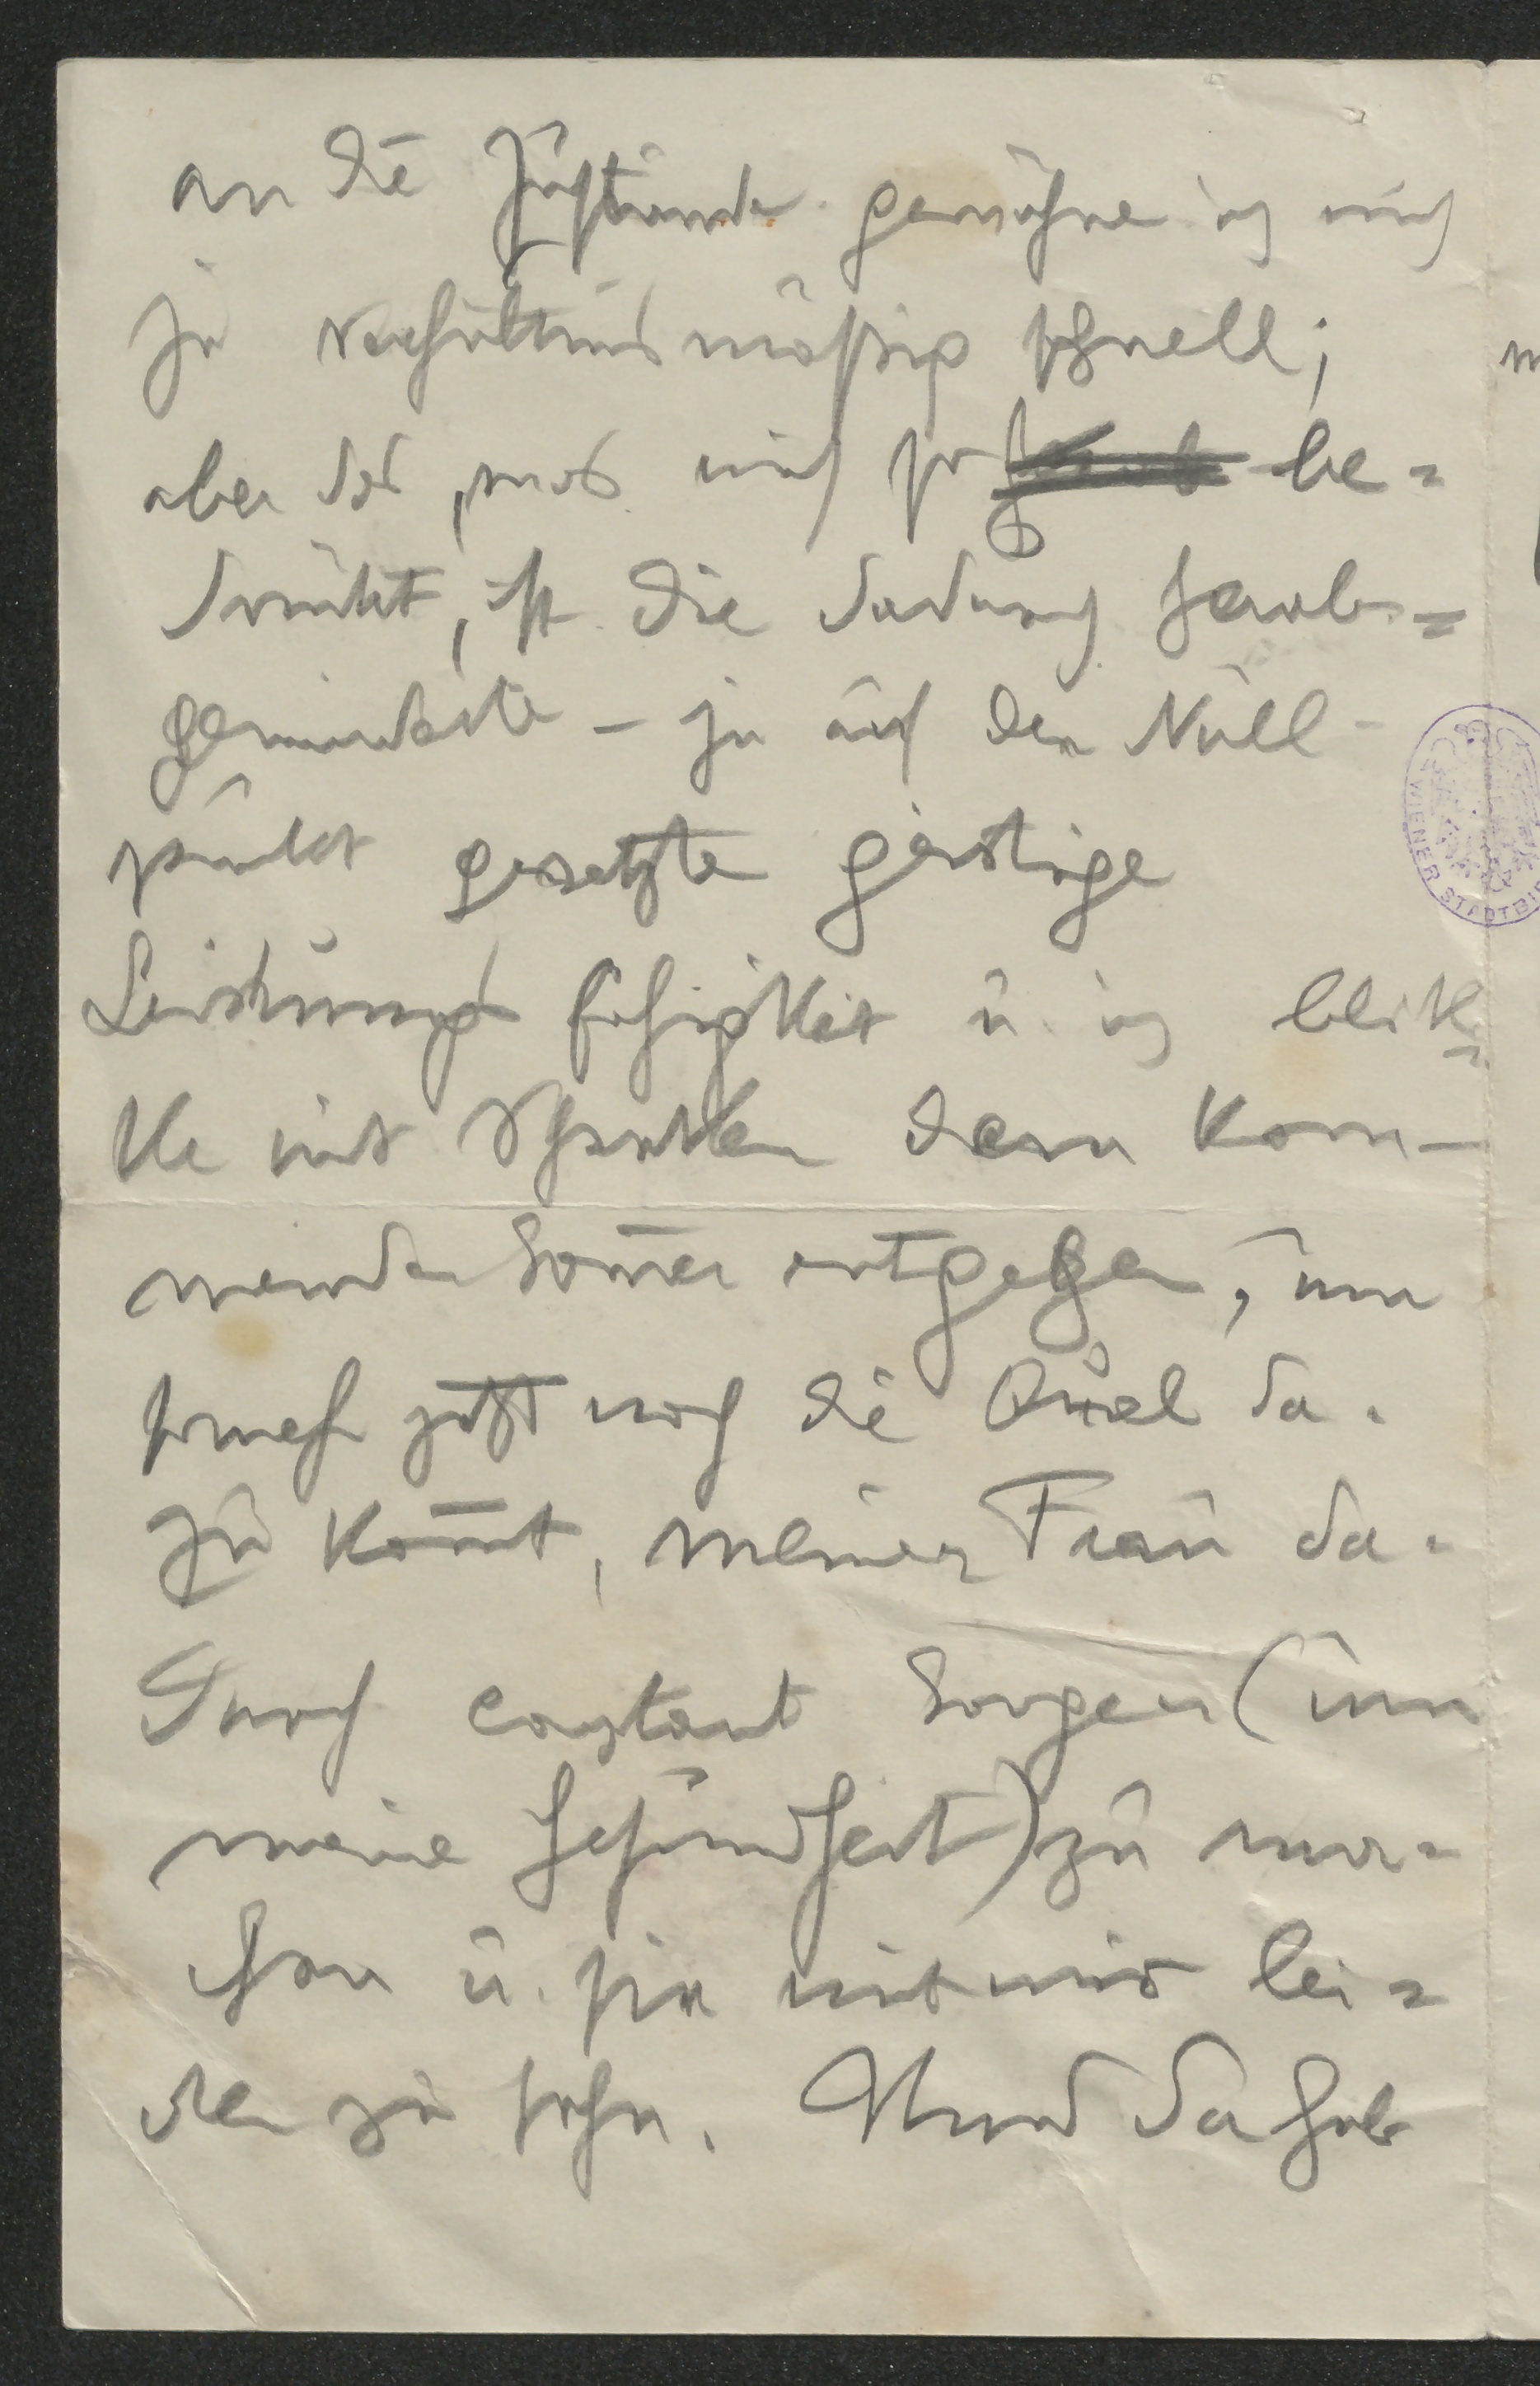 an die Zustände gewöhne ich mich
ja verhältnismäßig schnell;
aber das, was mich so be=
drückt, ist die dadurch herab=
geminderte – ja auf den Null-
punkt gesetzte geistige
Leistungsfähigkeit u. ich blik=
ke mit Schrecken dem kom-
menden Som̄er entgegen, um
somehr jetzt noch die Qual da-
zu kom̄t, meiner Frau da-
durch constant Sorgen (um
meine Gesundheit) zu ma=
chen u. sie mit mir lei=
den zu sehn. Und da hab
WIENER STADTBI